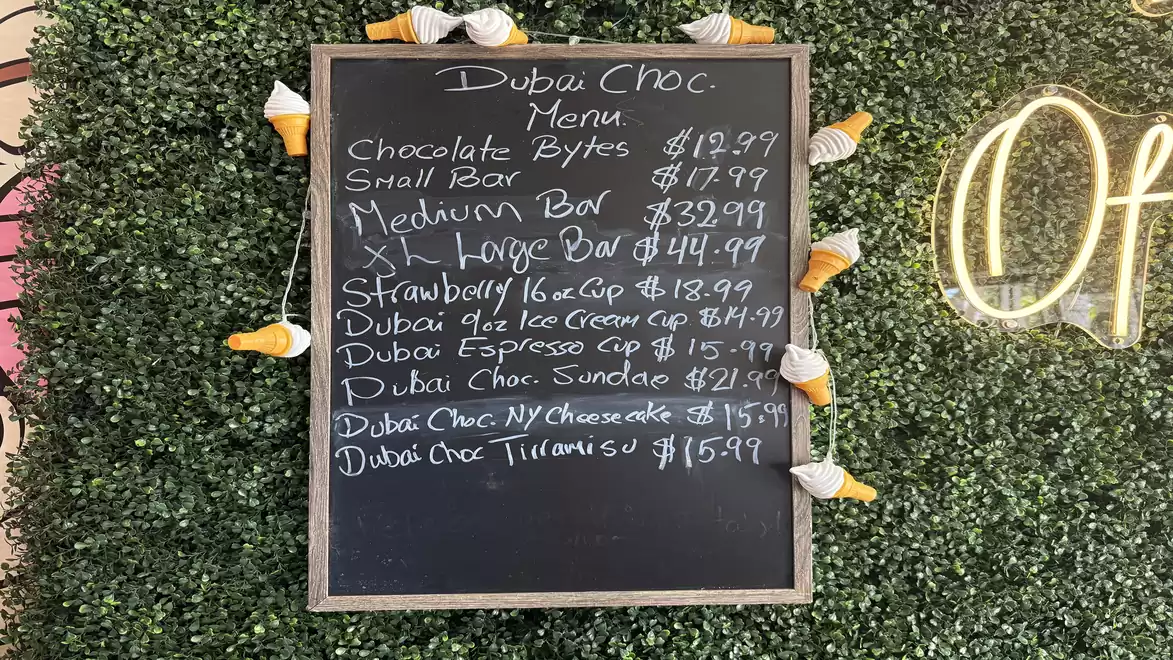 Dubai Choc.
Menu.
Chocolate Bytes $12.99
Small Bar $17.99
Medium Bar $32.99
XL Large Bar $44.99
Strawberry 16oz Cup $18.99
Dubai 9oz Ice Cream Cup $14.99
Dubai Espresso Cup $15.99
Dubai Choc. Sundae $21.99
Dubai Choc. NY Cheesecake $15.99
Dubai Choc Tirramisu $15.99